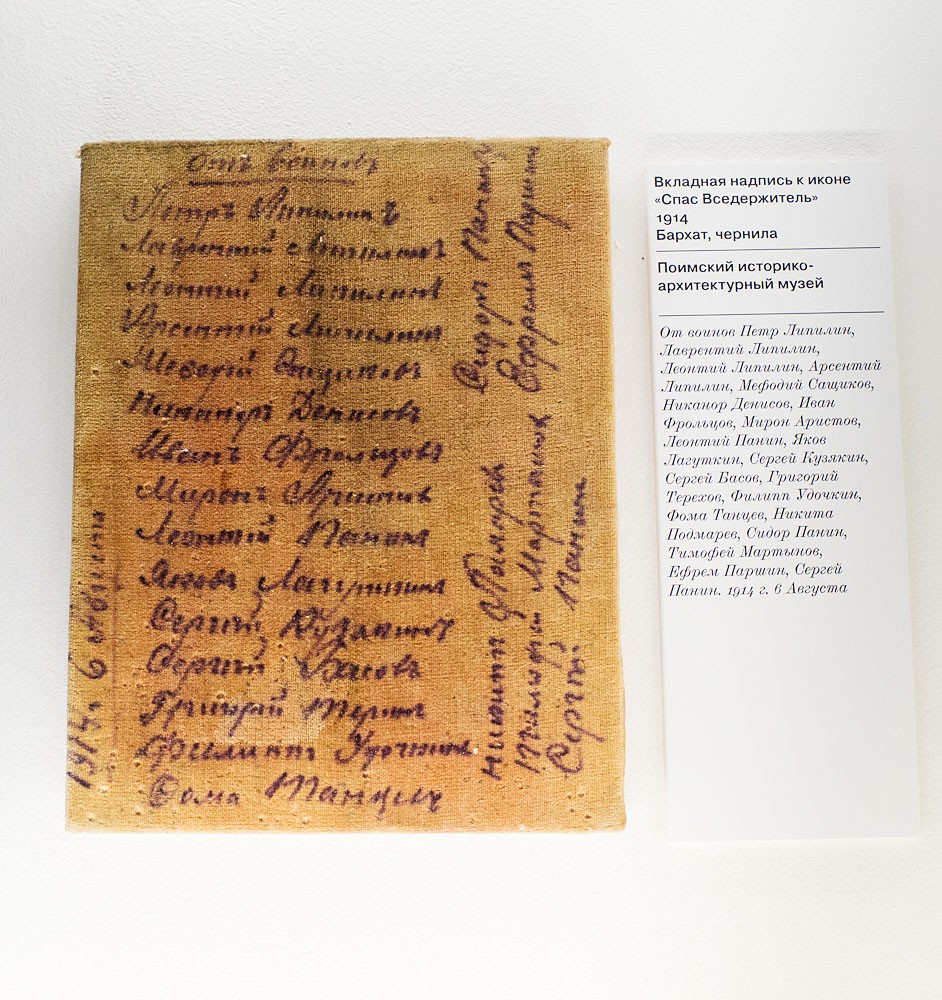 отъ воиновъ
Петръ Липилинъ
Лаврентий Липилинъ
Леонтий Липилинъ
Арсентий Липилинъ
Мефодий Сащиковъ
Никаноръ Денисовъ
Иванъ Фрольцовъ
Миронъ Аристовъ
Леонтий Панинъ
Яковъ Лагуткинъ
Сергѣй Кузякинъ
Сергѣй Басовъ
Григорий Терехов
Филиппъ Удочкинъ
Фома Танцевъ
Никита
Тимофей Мартынов
Сергѣй Панинъ
Сидоръ Панинъ
Ефремъ Паршин
1914 г. 6 Августа
Вкладная надпись к иконе
«Спас Вседержитель»
1914
Бархат, чернила
Поимский историко-
архитектурный музей
От воинов Петр Липилин,
Лаврентий Липилин,
Леонтий Липилин, Арсентий
Липилин, Мефодий Сащиков,
Никанор Денисов, Иван
Фрольцов, Мирон Аристов,
Леонтий Панин, Яков
Лагуткин, Сергей Кузякин,
Сергей Басов, Григорий
Терехов, Филипп Удочкин,
Фома Танцев, Никита
Подмарев, Сидор Панин,
Тимофей Мартынов,
Ефрем Паршин, Сергей
Панин. 1914 г. 6 Августа